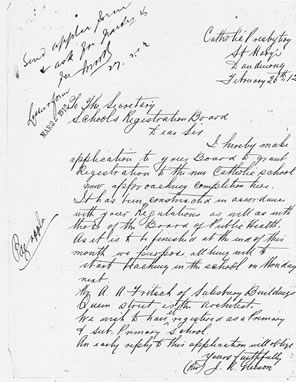 Send applic form
& ask for
27.2.12
Catholic Presbytery
St Mary's
Dandenong
February 26th 12
To The Secretary
Schools Registration Board
Dear Sir
I hereby make
application to your Board to grant
Registration to the new Catholic school
now approaching completion here.
It has been constructed in accordance
with your Regulations as well as with
those of the Board of Public Health.
As it is to be finished at the end of this
month we purpose all being well to
start teaching in the school on Monday
next
Mr A A Fritsch of Salisbury Building
Queen Street is the Architect
We wish to have registered as a Primary
& Sub. Primary School.
An early reply to this application will oblige
Yours faithfully
(Rev) J. H.